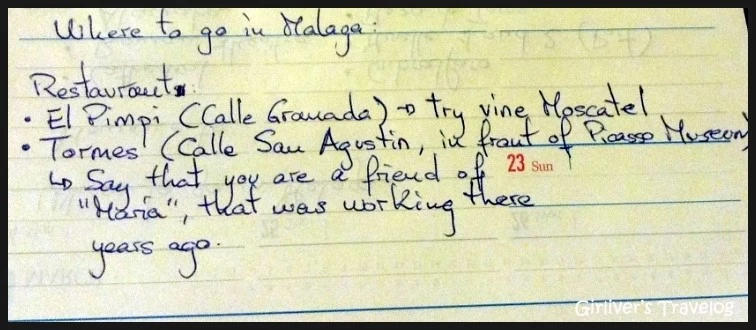 Where to go in Malaga:
Restaurants:
• El Pimpi (Calle Granada) → try vine Moscatel
• Tormes (Calle San Agustin, in front of Picasso Museum)
↳ Say that you are a friend of
23 Sun
"Maria", that was working there
years ago.
Girliver's Travelog